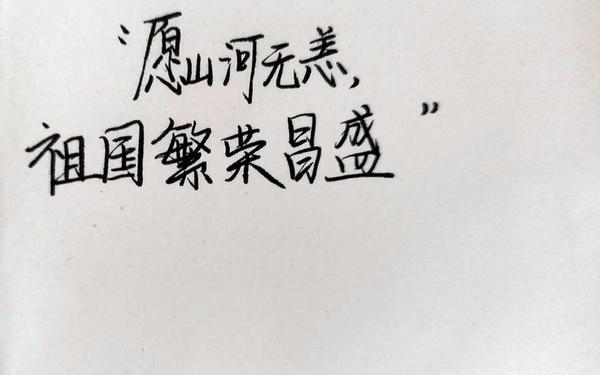 “愿山河无恙,
祖国繁荣昌盛”